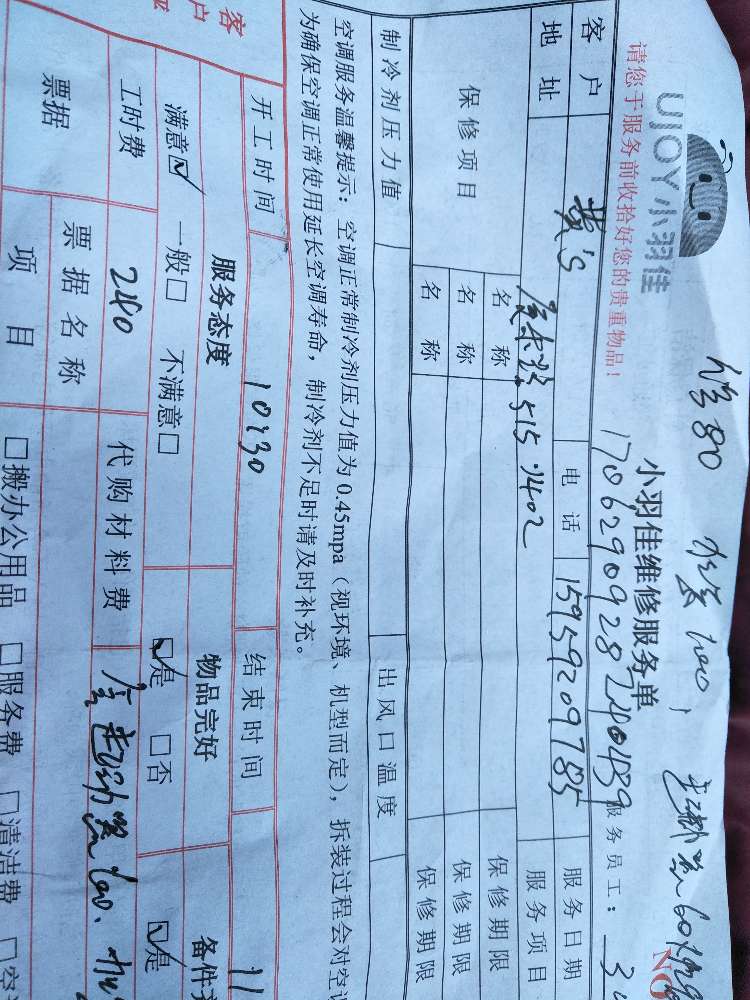 修80
UJOY小羽佳
小羽佳维修服务单
NO
请您于服务前收拾好您的贵重物品！
1706290928240439
服务员工：
客户
黄's
电话
15959209785
服务日期
地址
515.1402
服务项目
保修项目
名称
保修期限
名称
保修期限
名称
保修期限
制冷剂压力值
出风口温度
空调服务温馨提示：空调正常制冷剂压力值为0.45mpa（视环境、机型而定），拆装过程会对空调
为确保空调正常使用延长空调寿命，制冷剂不足时请及时补充。
客户
开工时间
10:30
结束时间
11
服务态度
物品完好
备件
满意☑ 一般□ 不满意□
☑是 □否
☑是
工时费
240
代购材料费
票据
票据名称
项目
□搬办公用品 □服务费 □清洁费 □空